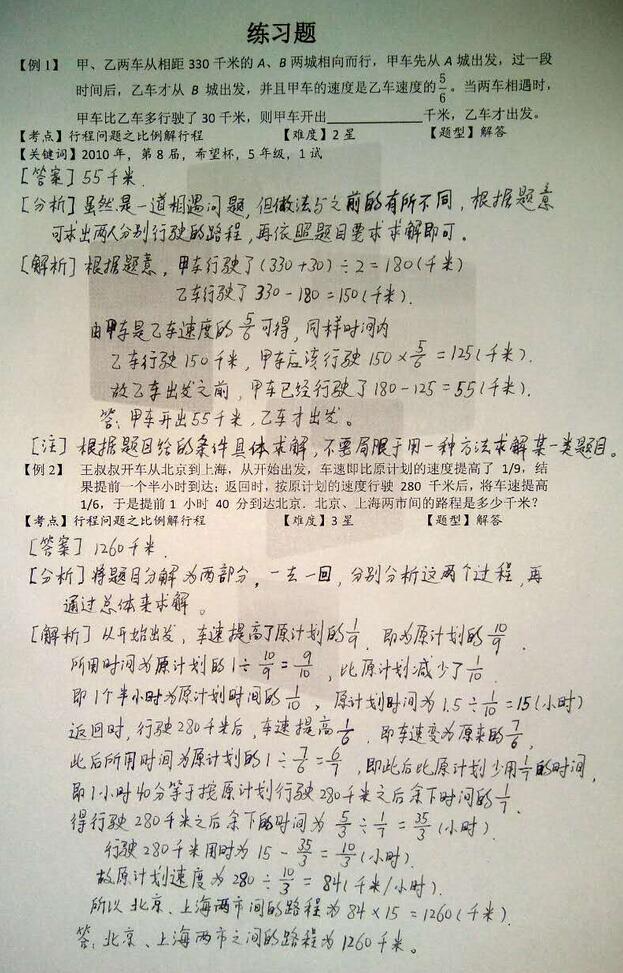 练习题
【例1】 甲、乙两车从相距 330 千米的 A、B 两城相向而行，甲车先从 A 城出发，过一段
时间后，乙车才从 B 城出发，并且甲车的速度是乙车速度的5/6。当两车相遇时，
甲车比乙车多行驶了 30 千米，则甲车开出____________千米，乙车才出发。
【考点】行程问题之比例解行程 【难度】2 星 【题型】解答
【关键词】2010 年，第 8 届，希望杯，5 年级，1 试
[答案] 55千米.
[分析] 虽然是一道相遇问题，但做法与之前的有所不同，根据题意
可求出两人分别行驶的路程，再依照题目要求求解即可。
[解析] 根据题意，甲车行驶了(330+30)÷2=180(千米)
乙车行驶了 330-180=150(千米).
由甲车是乙车速度的5/6可得，同样时间内
乙车行驶150千米，甲车应该行驶150×5/6=125(千米).
故乙车出发之前，甲车已经行驶了180-125=55(千米).
答：甲车开出55千米，乙车才出发。
[注] 根据题目给的条件具体求解，不要局限于用一种方法求解某一类题目。
【例2】 王叔叔开车从北京到上海，从开始出发，车速即比原计划的速度提高了 1/9，结
果提前一个半小时到达；返回时，按原计划的速度行驶 280 千米后，将车速提高
1/6，于是提前 1 小时 40 分到达北京．北京、上海两市间的路程是多少千米?
【考点】行程问题之比例解行程 【难度】3 星 【题型】解答
[答案] 1260千米.
[分析] 将题目分解为两部分，一去一回，分别分析这两个过程，再
通过总体来求解。
[解析] 从开始出发，车速提高了原计划的1/9，即为原计划的10/9.
所用时间为原计划的1÷10/9=9/10，比原计划减少了1/10.
即1个半小时为原计划时间的1/10，原计划时间为1.5÷1/10=15(小时)
返回时，行驶280千米后，车速提高1/6，即车速变为原来的7/6，
此后所用时间为原计划的1÷7/6=6/7，即此后比原计划少用1/7的时间，
即1小时40分等于按原计划行驶280千米之后余下时间的1/7.
得行驶280千米之后余下的时间为5/3÷1/7=35/3(小时).
行驶280千米用时为15-35/3=10/3(小时).
故原计划速度为280÷10/3=84(千米/小时).
所以北京、上海两市间的路程为84×15=1260(千米)
答：北京、上海两市之间的路程为1260千米。